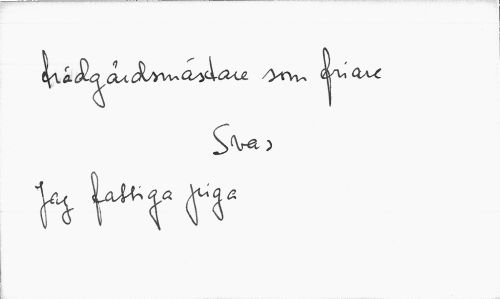 trädgårdsmästare som friare
Svar
Jag fattiga piga